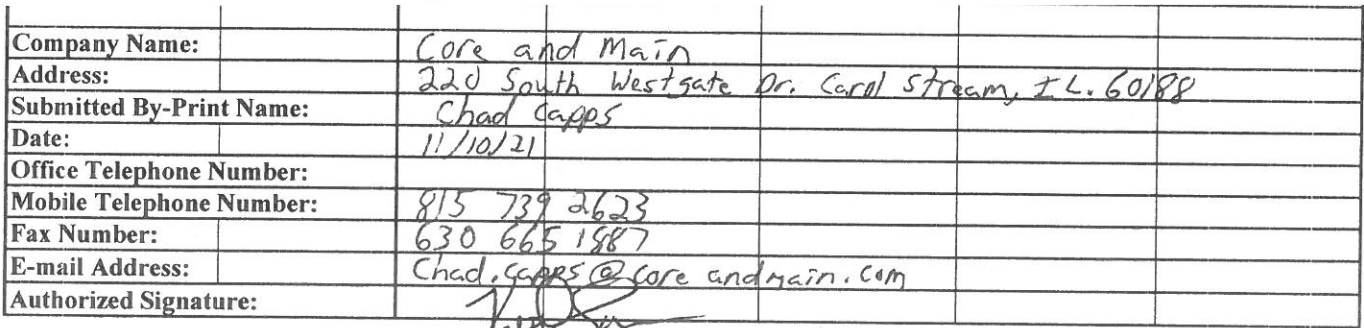 Company Name: Core and Main
Address: 220 South Westgate Dr. Carol Stream, IL. 60188
Submitted By-Print Name: Chad Capps
Date: 11/10/21
Office Telephone Number:
Mobile Telephone Number: 815 739 2623
Fax Number: 630 665 1887
E-mail Address: Chad.capps@coreandmain.com
Authorized Signature: